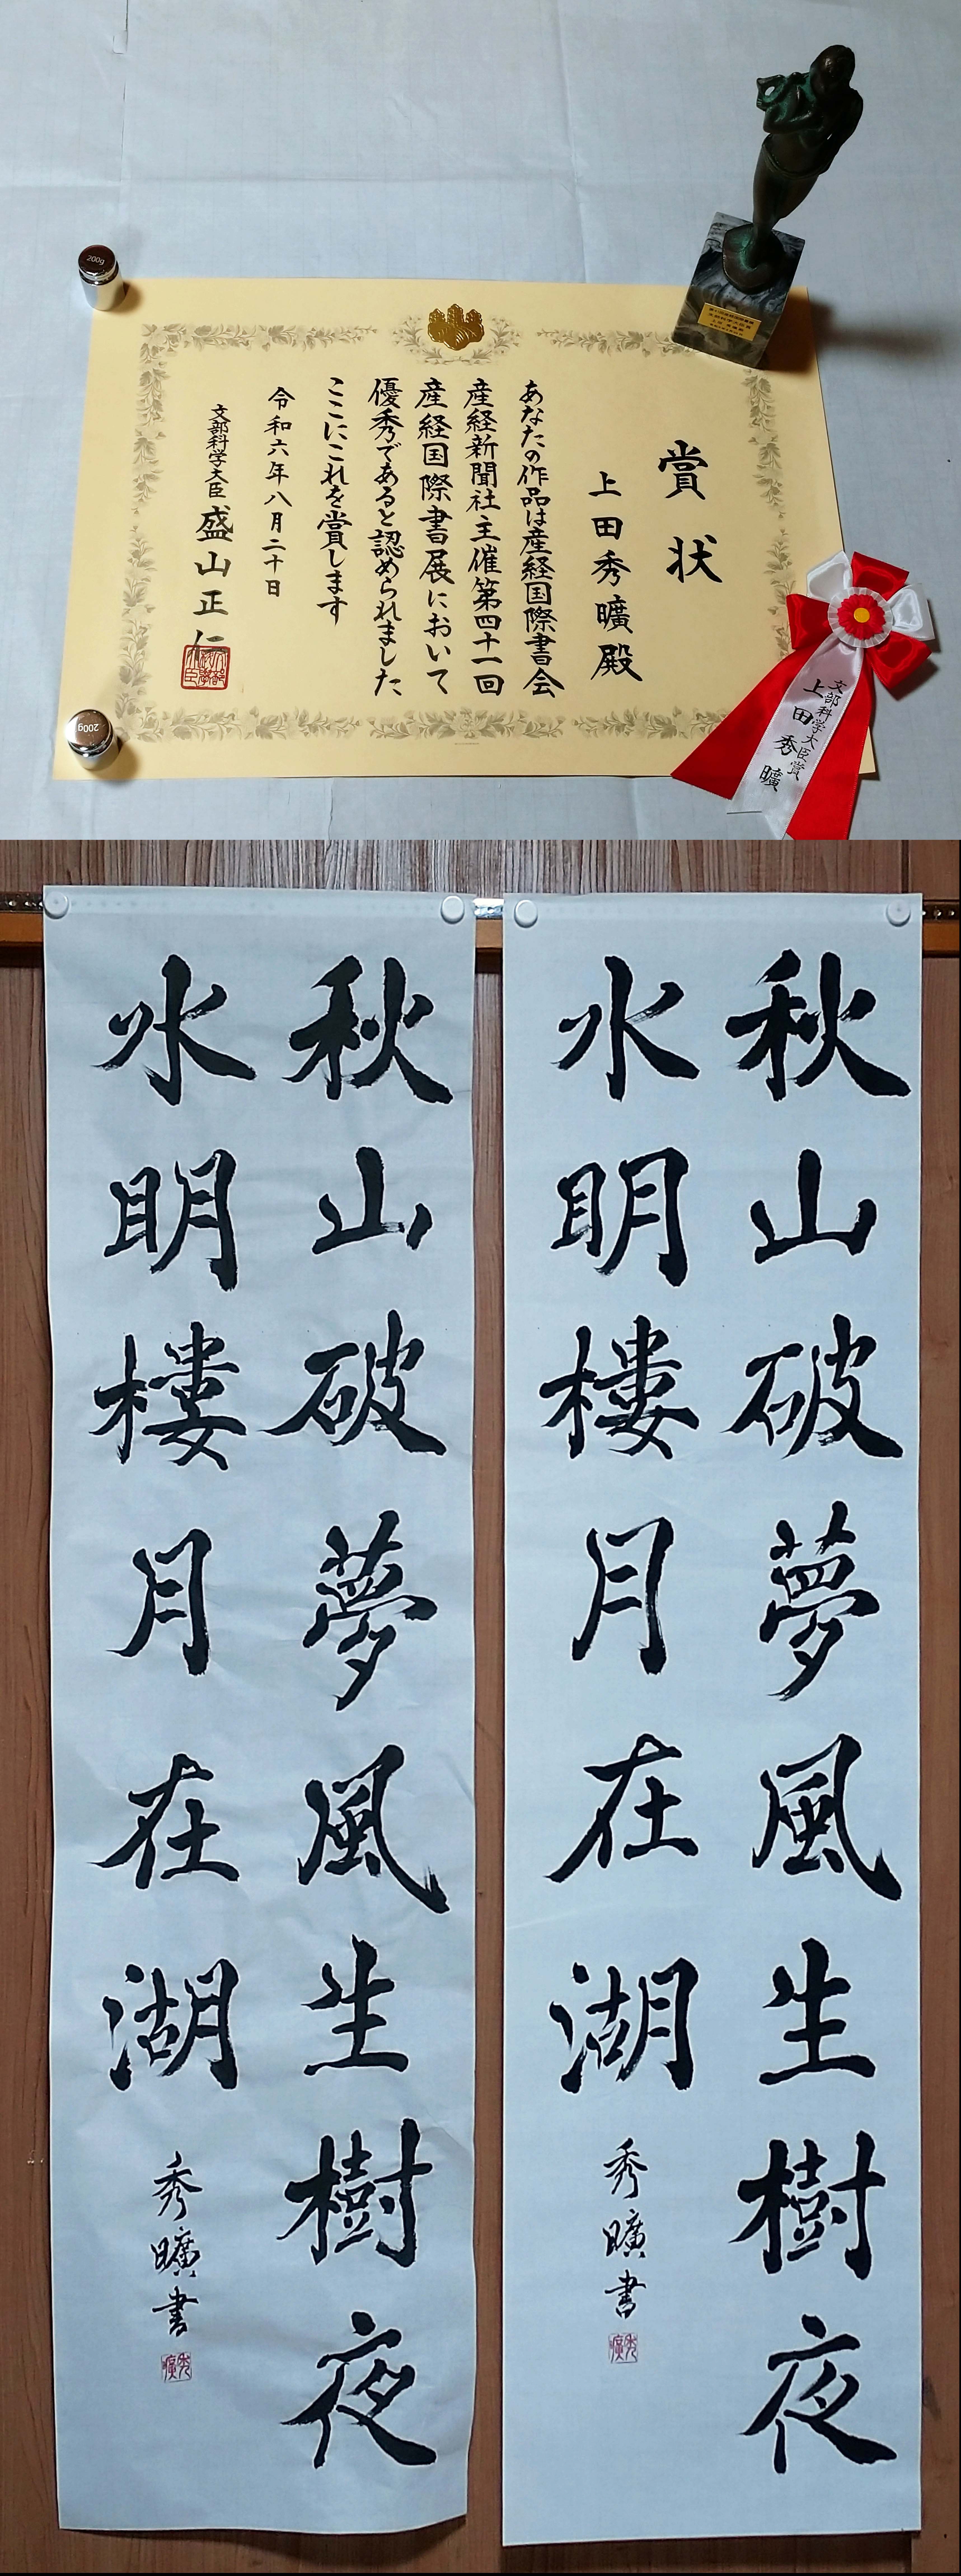 賞状
上田秀曠殿
あなたの作品は産経国際書会
産経新聞社主催第四十一回
産経国際書展において
優秀であると認められました
ここにこれを賞します
令和六年八月二十日
文部科学大臣 盛山正仁
文部科学大臣賞
上田秀曠
200g
200g
秋山破夢風生樹夜
水明樓月在湖
秀曠書
秋山破夢風生樹夜
水明樓月在湖
秀曠書